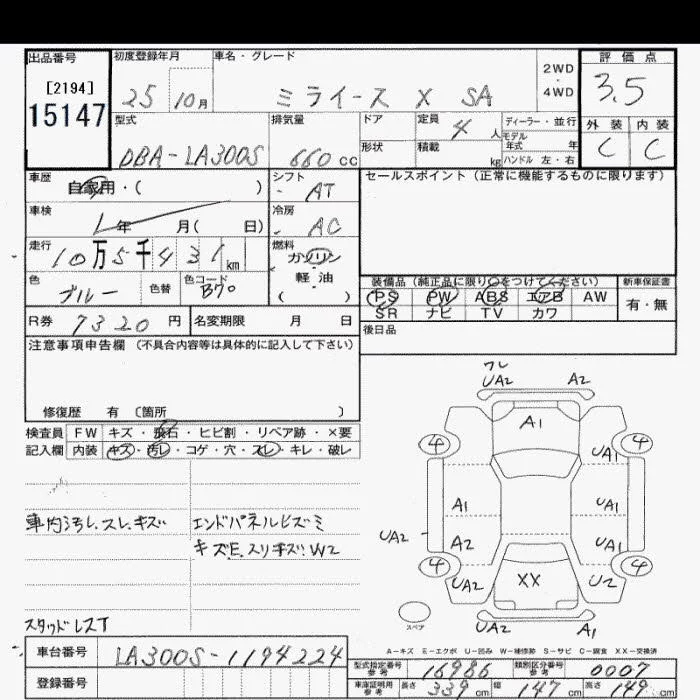 出品番号 初度登録年月 車名・グレード 評価点
[2194]
15147
25 10月 ミライース X SA 2WD・4WD 3.5
型式 排気量 ドア 定員 4人 ディーラー・並行 外装 内装
モデル年式 年
DBA-LA300S 660cc 形状 積載 kg ハンドル 左・右 C C
車歴 自家用・( ) シフト AT セールスポイント(正常に機能するものに限ります)
車検 1年 月( 日) 冷房 AC
走行 10万5千431km 燃料 ガソリン
軽油
( )
色 ブルー 色替 色コード 装備品(純正品に限り○をつけてください) 新車保証書
PS PW ABS エアB AW 有・無
SR ナビ TV カワ
R券 7320円 名変期限 月 日 後日品
注意事項申告欄(不具合内容等は具体的に記入して下さい)
修復歴 有 〔箇所 〕
検査員 FW キズ・飛石・ヒビ割・リペア跡・×要
記入欄 内装 キズ・汚レ・コゲ・穴・スレ・キレ・破レ
車内汚レ.スレ.キズ エンドパネルヒズミ
キズE.スリキズW2
スタッドレスT
ワレ
UA2 A2
A1
4 4
UA1
A1 UA1
UA2 A2 UA1
4 4
UA2 XX U2
UA2 A1
スペア
A-キズ E-エクボ U-凹み W-補修跡 S-サビ C-腐食 XX-交換済
車台番号 LA300S-1194224
登録番号
型式指定番号 参考 16986 類別区分番号 参考 0007
車庫証明用 参考 長さ 339cm 幅 147cm 高さ 149cm